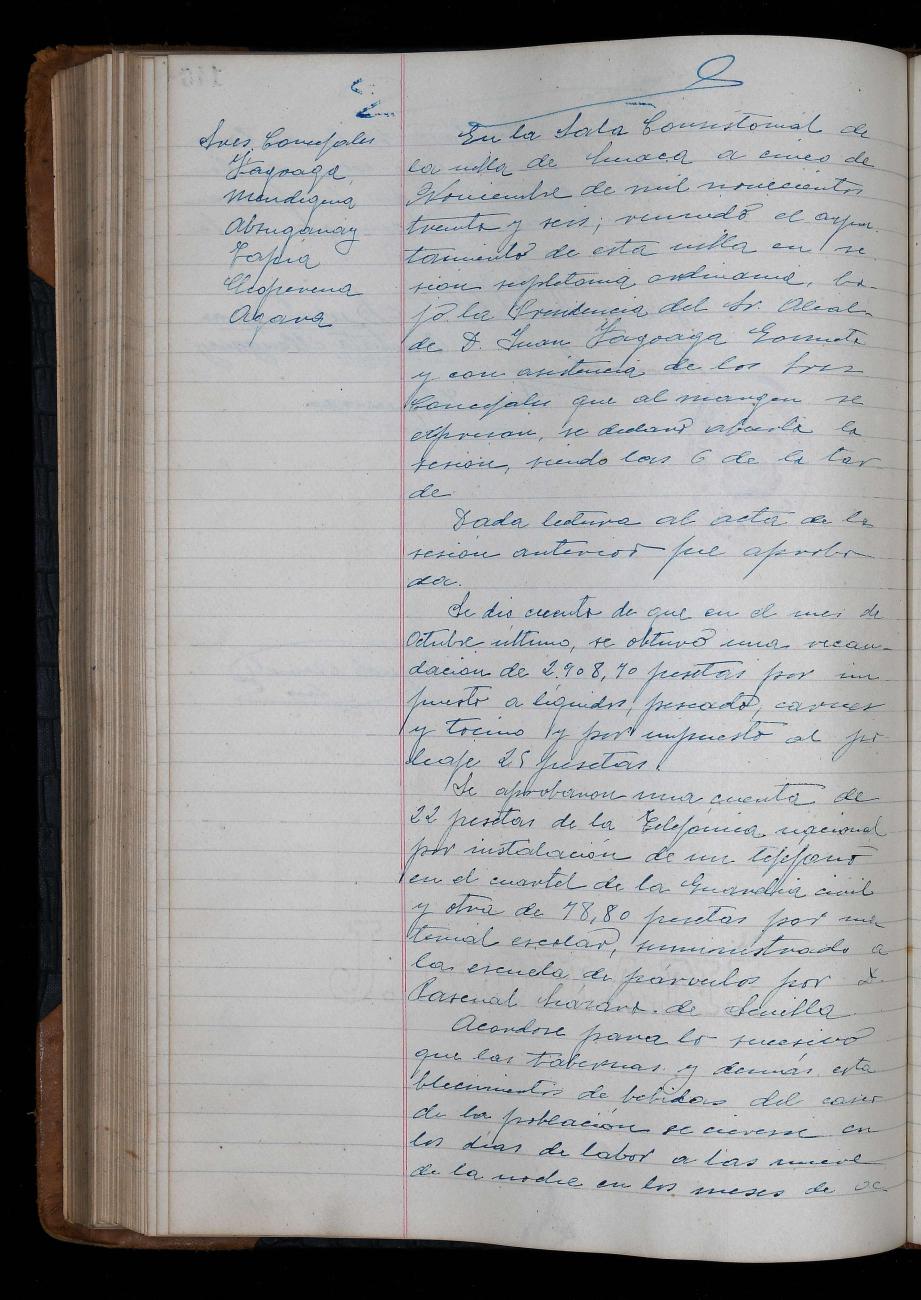 Sres. Concejales
Yagoaga
Mendiguia
Absuganay
Tapia
Chopevena
Agara
En la Sala Consistorial de
la villa de a cinco de
Noviembre de mil novecientos
treinta y seis; reunido el ayun-
tamiento de esta villa en se-
sion supletoria ordinaria, ba-
jo la Presidencia del Sr. Alcal-
de D. Juan Yagoaga
y con asistencia de los Sres
Concejales que al margen se
expresan, se declaró abierta la
sesión, siendo las 6 de la tar
de.
Dada lectura al acta de la
sesión anterior fue aproba
da.
Se dió cuenta de que en el mes de
Octubre último, se obtuvo una recau-
dación de 2.908,70 pesetas por im
puesto a líquidos, pescado, carnes
y tocino y por impuesto al
25 pesetas.
Se aprobaron una cuenta de
22 pesetas de la Telefónica nacional
por instalación de un teléfono
en el cuartel de la Guardia civil
y otra de 78,80 pesetas por ma
terial escolar, suministrado a
la escuela de párvulos por D.
Pascual Lázaro de Sevilla
Acordose para lo sucesivo
que las tabernas y demás esta
blecimientos de bebidas del casco
de la población se cierren en
los días de labor a las nueve
de la noche en los meses de oc